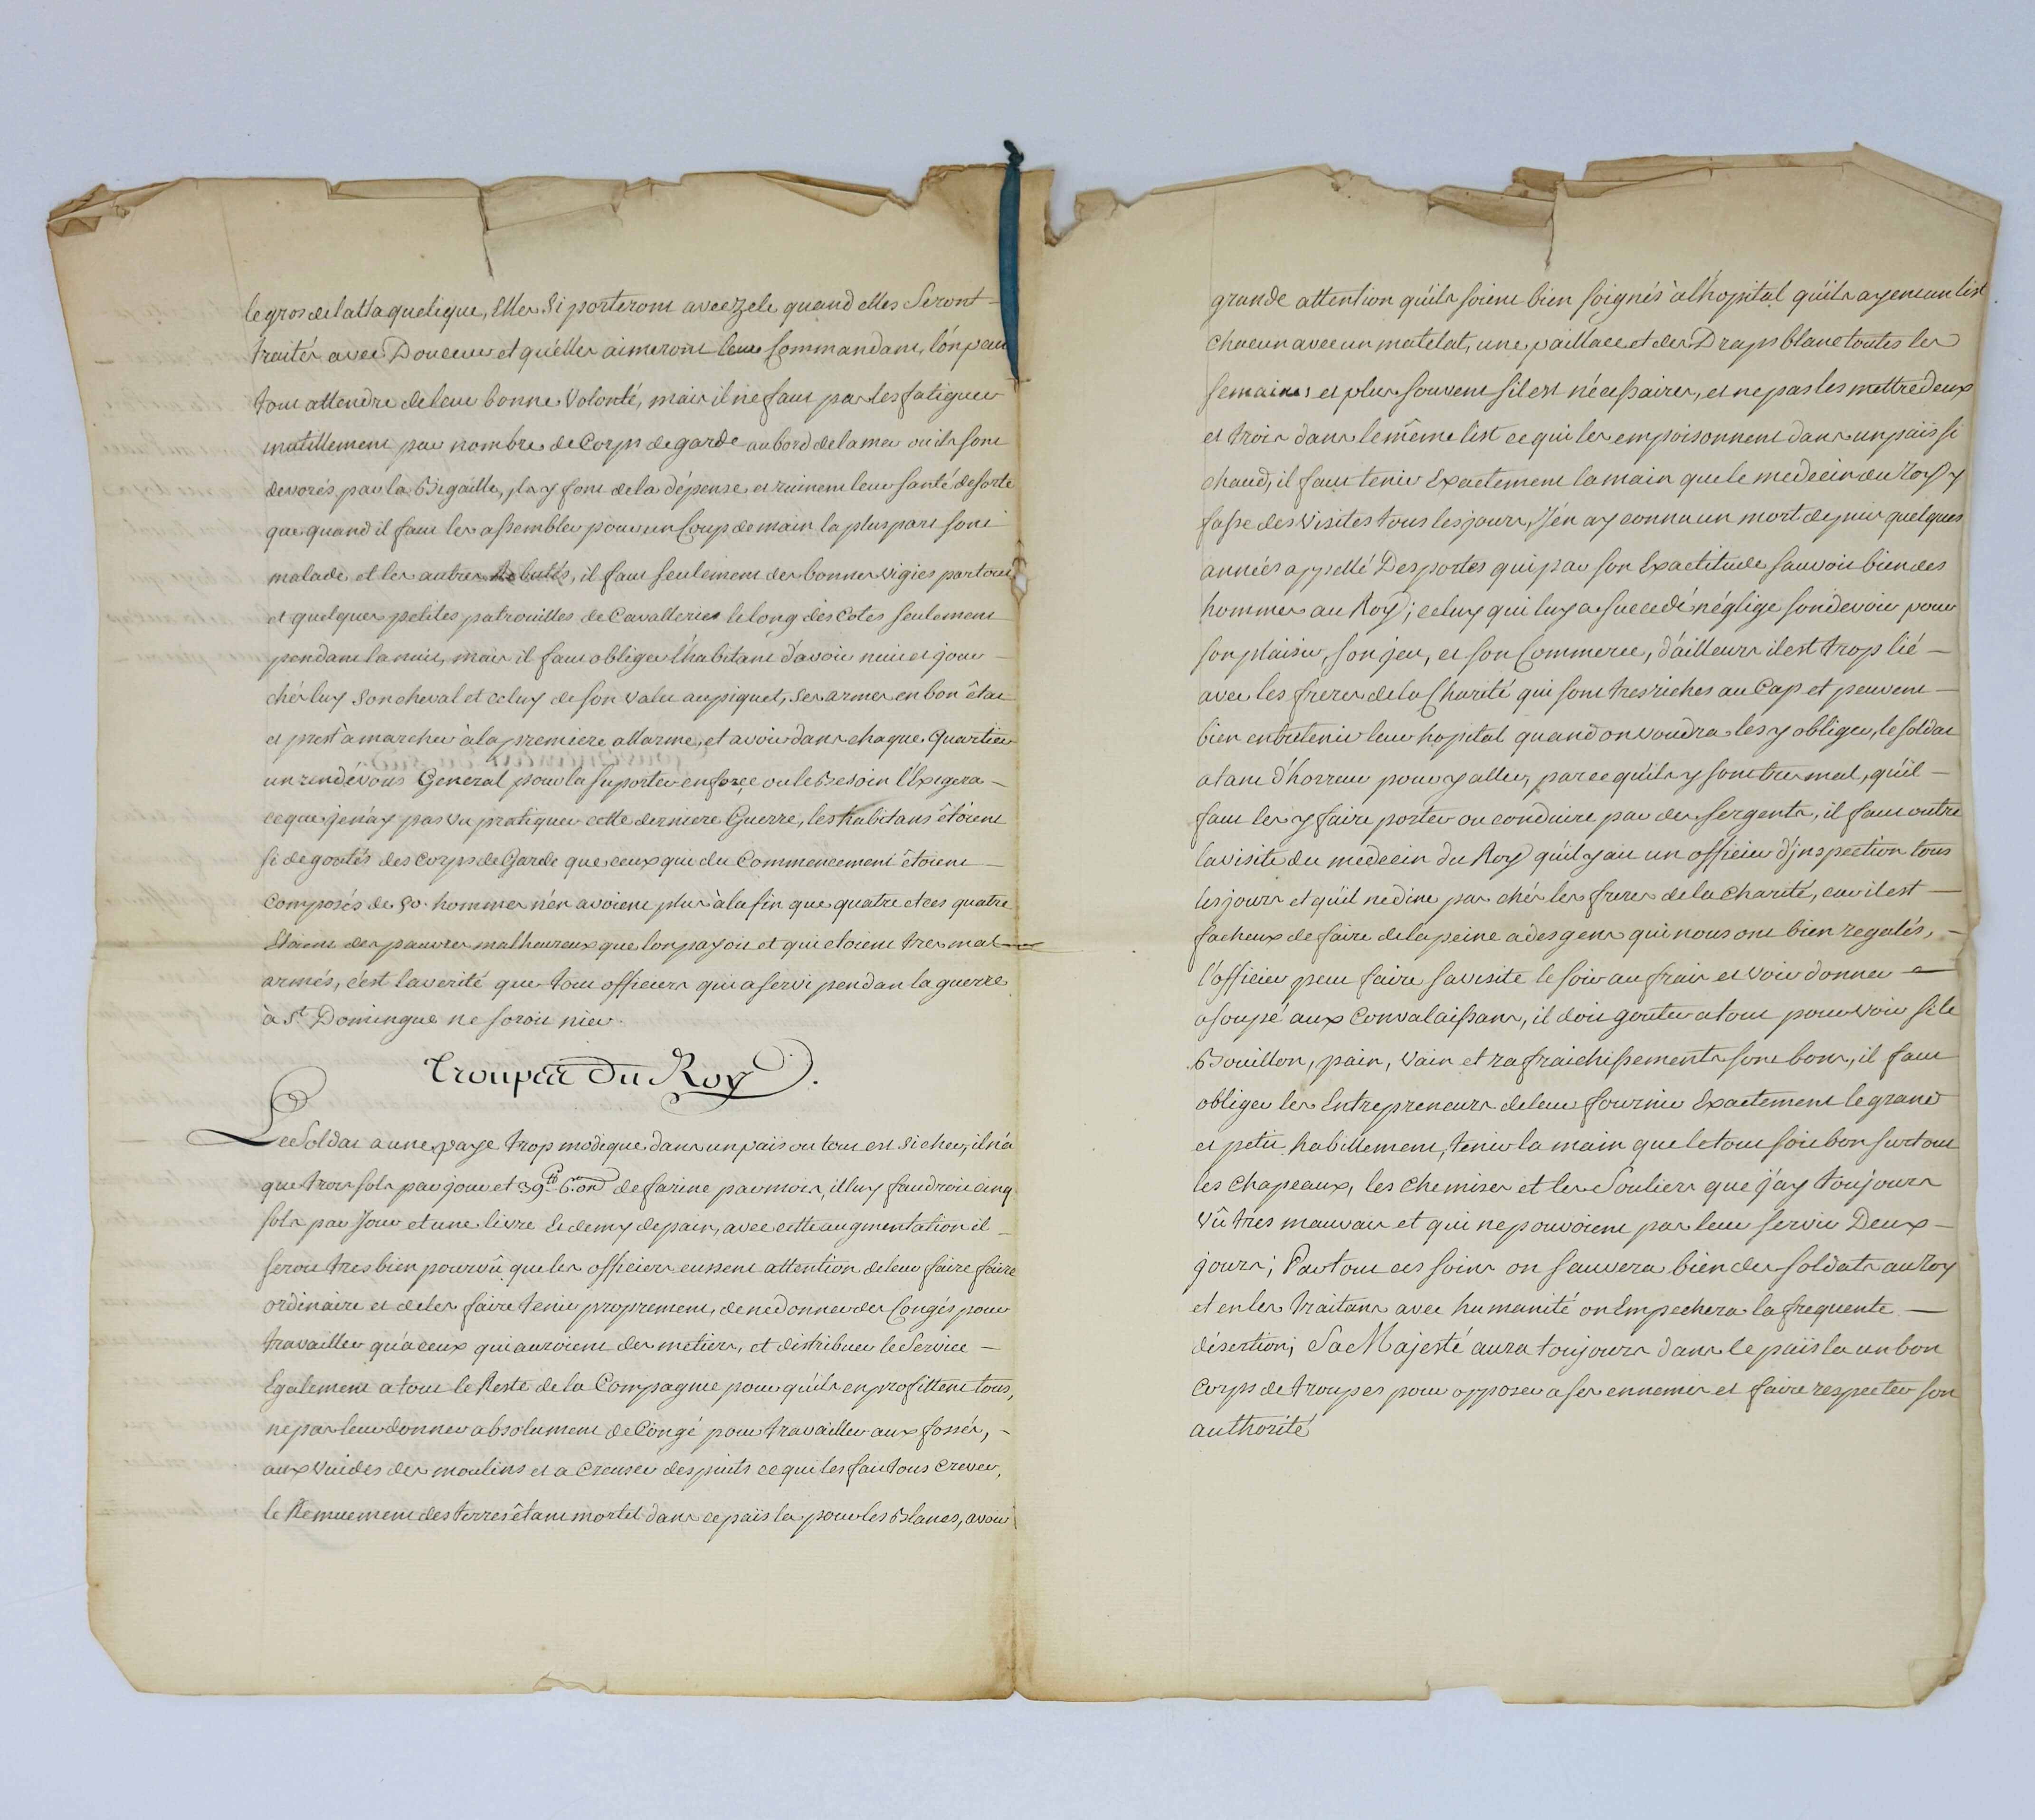 le gros de lattaque lique, Elles Si porteront avec zele quand elles Seront
traités avec Douceur et qu'elles aimeront leur Commandant, l'on peut
tout attendre de leur bonne Volonté, mais il ne faut pas les fatiguer
inutillement par nombre de Corps de garde au bord de la mer ou ils sont
devorés par la Bigaille, ils y font de la dépense et ruinent leur santé de sorte
que quand il faut les assembler pour un Coup de main la plus part sont
malade et les autres Rebutés, il faut seulement des bonnes vigies par tout
et quelques petites patrouilles de Cavallerie le long des Cotes seulement
pendant la nuit, mais il faut obliger l'habitant d'avoir nuit et jour
chés luy son cheval et celuy de son valet au piquet, ses armes en bon êtat
et prest a marcher à la premiere allarme, et avoir dans chaque Quartier
un rendévous General pour la se porter en force ou le Besoin l'Exigera
ce que je n'ay pas vu pratiquer cette derniere Guerre, les habitans êtoient
si degoutés des corps de Garde que ceux qui du Commencement êtoient
Composés de 50. hommes n'en avoient plus à la fin que quatre et ces quatre
Etoient des pauvres malheureux que l'on payoit et qui etoient tres mal
armés, c'est la verité que tout officiers qui a servi pendan la guerre
à St. Domingue ne soroit nier.
Troupes du Roy.
Le Soldat a une paye trop modique dans un païs ou tout est si cher, il n'a
que trois sols par jour et 39 lb 6 on de farine par mois, il luy faudroit cinq
sols par Jour et une livre Et demy de pain, avec cette augmentation il
seroit tres bien pourvû que les officiers eussent attention de leur faire faire
ordinaire et de les faire tenir proprement, de ne donner des Congés pour
travailler qu'a ceux qui auroient des metiers, et distribuer le Service
Egalement a tout le Reste de la Compagnie pour qu'ils en profittent tous,
ne pas leur donner absolument de Congé pour travailler aux fossés,
aux vuides des moulins et a Creuser des puits ce qui les fait tous crever,
le Remuement des terres êtant mortel dans ce païs la pour les Blancs, avoir
grande attention qu'ils soient bien soignés à l'hopital qu'ils ayent un lit
chacun avec un matelat, une paillace et des Draps blanc toutes les
semaines et plus souvent s'il est nécessaires, et ne pas les mettre deux
et trois dans le même list ce qui les empoisonnent dans un païs si
chaud, il faut tenir Exactement la main que le medecin du Roy y
fasse des visites tous les jours, J'en ay connu un mort depuis quelques
années appellé Desportes qui par son Exactitude sauvoit bien des
hommes au Roy; celuy qui luy a succedé néglige son devoir pour
son plaisir, son jeu, et son Commerce, d'ailleurs il est trop lié
avec les freres de la Charité qui sont tres riches au Cap et peuvent
bien entretenir leur hopital quand on voudra les y obliger, le soldat
a tant d'horreur pour y aller, parce qu'ils y sont tres mal, qu'il
faut les y faire porter ou conduire par des sergents, il faut outre
la visite du medecin du Roy qu'il y ait un officier d'inspection tous
les jours et qu'il ne dine pas chés les freres de la Charité, car il est
facheux de faire de la peine a des gens qui nous ont bien regalés,
l'officier peut faire sa visite le soir au frais et voir donner
a soupé aux Convalaissans, il doit gouter a tout pour voir si le
Bouillon, pain, vain et rafraichissements sont bons, il faut
obliger les Entrepreneurs de leur fournir Exactement le grand
et petit habillement, tenir la main que le tout soit bon surtout
les chapeaux, les chemises et les Souliers que j'ay toujours
vû tres mauvais et qui ne pouvoient pas leur servir Deux
jours; Par tout ces soins on sauvera bien des soldats au Roy
et en les traitans avec humanité on Empechera la frequente
désertion; Sa Majesté aura toujours dans le païs la un bon
Corps de troupes pour opposer a ses ennemis et faire respecter son
authorité